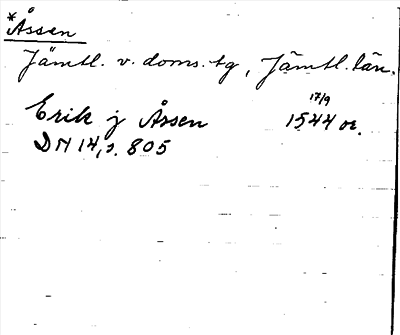 *Åssen
Jämtl. v. doms.tg, Jämtl. län.
17/9
Erik j Åssen 1544 or.
DN 14, s. 805